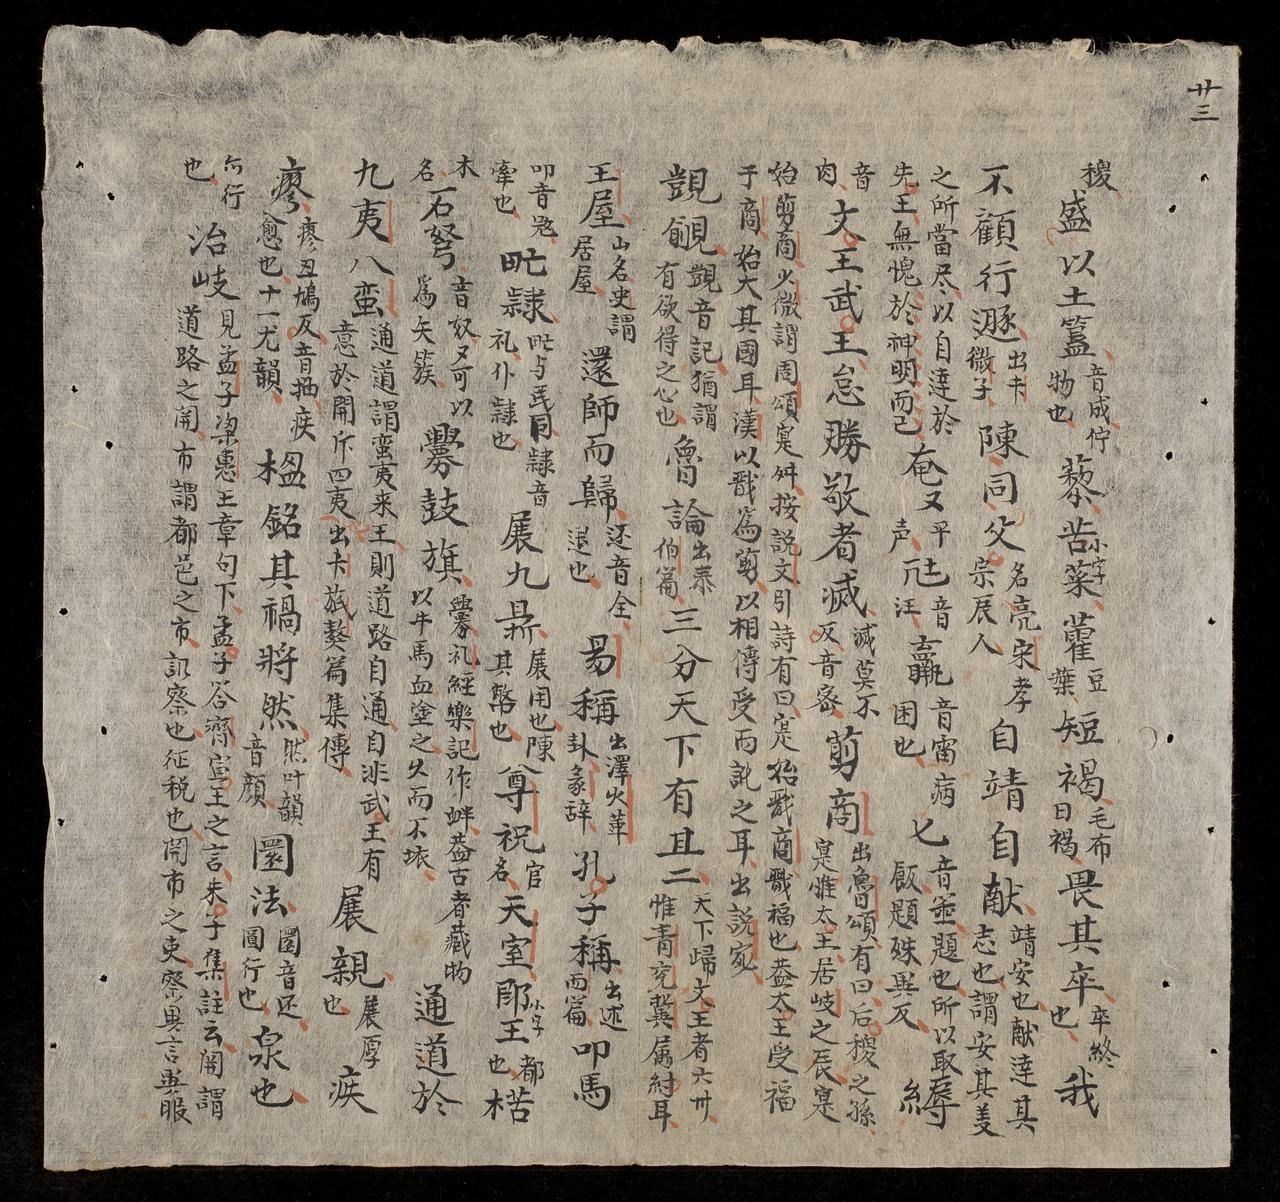 廿三
稷
盛以土簋音成佇物也藜苦菜小字藿豆葉短褐毛布曰褐畏其卒卒終也我
不顧行遯出卡微子陳同父名亮宋孝宗辰人自靖自献靖安也献達其志也謂安其美
之所當尽以自達於先王無愧於神明而已奄又平声尫音汪羸音雷病困也匕音並題也所以取飯題姝異反縟
音肉文王武王怠勝敬者滅滅莫不反音密剪商出魯頌有曰后稷之孫寔惟太王居岐之辰寔
始剪商火微謂周頌寔舛按説文引詩有曰寔始戩商戩福也蓋太王受福
于商始大其國耳漢以戩爲剪以相傳受而訛之耳出説宛
覬覦覬音記猶謂有欲得之心也魯論出泰伯篇三分天下有且二天下歸文王者六卅惟青兗冀属紂耳
王屋山名史謂居屋還師而歸还音全退也易稱出澤火革卦彖辞孔子稱出述而篇叩馬
叩音寇牽也甿隷甿与民同隷音礼仆隷也展九鼎展用也陳其幣也尊祝官名天室郎王小字都也楛
木名石砮音奴又可以爲矢簇釁鼓旗釁礼經樂記作衅蓋古者藏物以牛馬血塗之久而不垓通道於
九夷八蛮通道謂蛮夷来王則道路自通自非武王有意於開斥四夷出卡旅獒篇集傳展親展厚也疾
瘳瘳丑鳩反音抽疾愈也十一尤韻楹銘其禍將然然叶韻音顔圜法圜音还圜行也泉也
亦行也治岐見孟子梁惠王章句下孟子答齊宣王之言朱子集註云関謂道路之関市謂都邑之市訊察也征税也関市之吏察異言異服